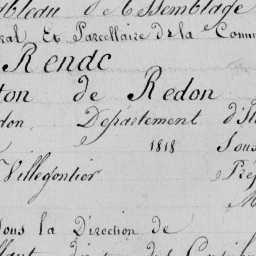 bleau d'Assemblage
ral Et Parcellaire de la Comm
Rende
ton de Redon
don Departement d'Il
1818 Sous
Villegontier Pré
M
Sous la Direction de